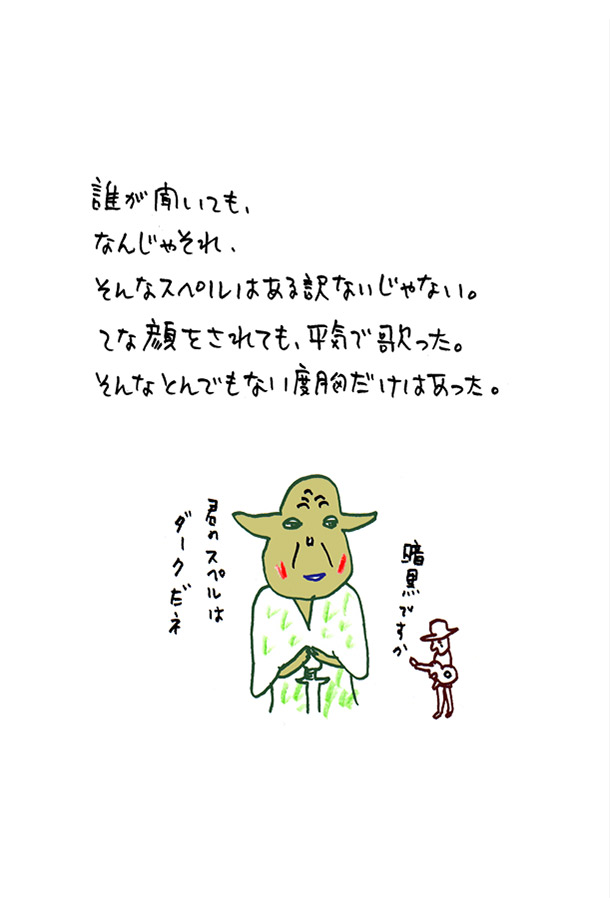 誰が聞いても、
なんじゃそれ、
そんなスペルはある訳ないじゃない。
てな顔をされても、平気で歌った。
そんなとんでもない度胸だけはあった。
君のスペルは
ダークだネ
暗黒ですか